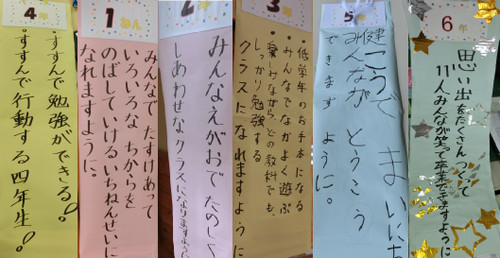 4年
・すすんで勉強ができる!
・すすんで行動する四年生!
1ねん
みんなで たすけあって
いろいろな ちからを
のばしていける いちねんせいに
なれますように。
2年
みんなえがおで たのしく
しあわせなクラスになりますように
3年
・低学年のお手本になる
・みんなでなかよく遊ぶ
・楽しみながら、どの教科でも、
しっかり勉強する
クラスになれますように
5年
健こうで まいにち
みんなが とうこう
できます ように。
6年
思い出をたくさんつくって
11人みんなが笑って卒業できますように